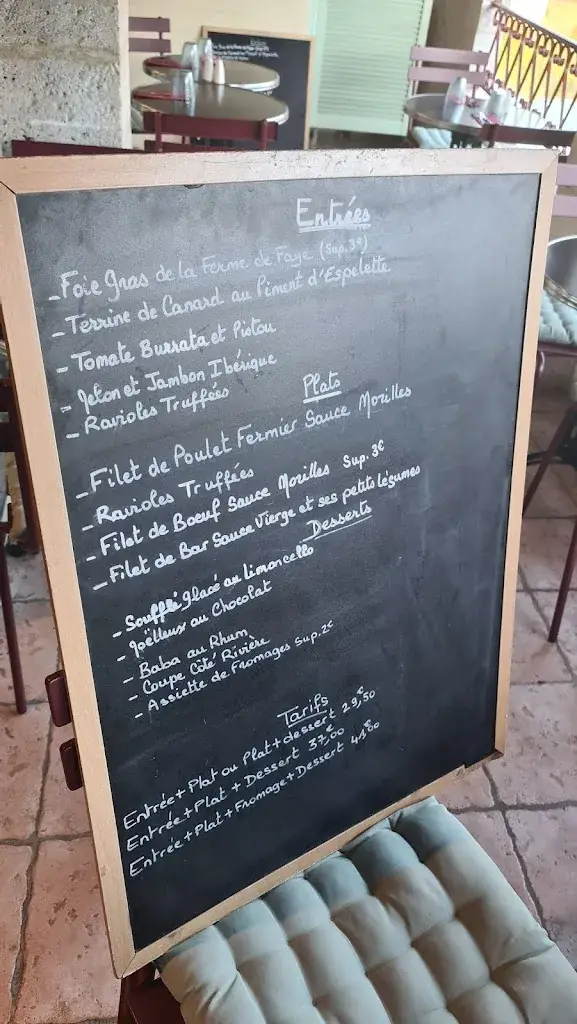 Entrées
- Foie Gras de la Ferme de Faye (Sup. 3€)
- Terrine de Canard au Piment d'Espelette
- Tomate Burrata et Pistou
- Jeton et Jambon Ibérique
- Ravioles Truffées
Plats
- Filet de Poulet Fermier Sauce Morilles
- Ravioles Truffées
- Filet de Boeuf Sauce Morilles Sup. 3€
- Filet de Bar Sauce Vierge et ses petits légumes
Desserts
- Soufflé glacé au limoncello
- au Chocolat
- Baba au Rhum
- Coupe Côté Rivière
- Assiette de Fromages Sup. 2€
Tarifs
Entrée + Plat ou Plat + dessert 29,50
Entrée + Plat + Dessert 37,00€
Entrée + Plat + Fromage + Dessert